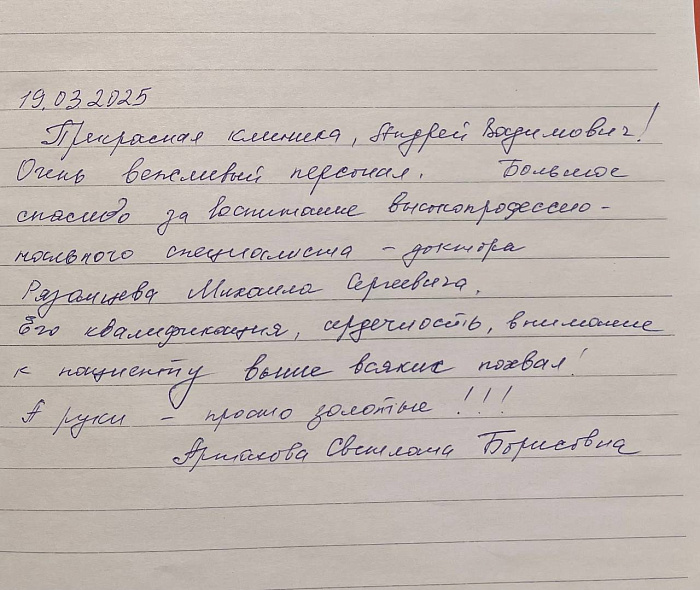 19.03.2025
Прекрасная клиника, Андрей Вадимович!
Очень вежливый персонал. Большое
спасибо за воспитание высокопрофессио-
нального специалиста – доктора
Рязанцева Михаила Сергеевича.
Его квалификация, сердечность, внимание
к пациенту выше всяких похвал!
А руки – просто золотые!!!
Светлана Борисовна